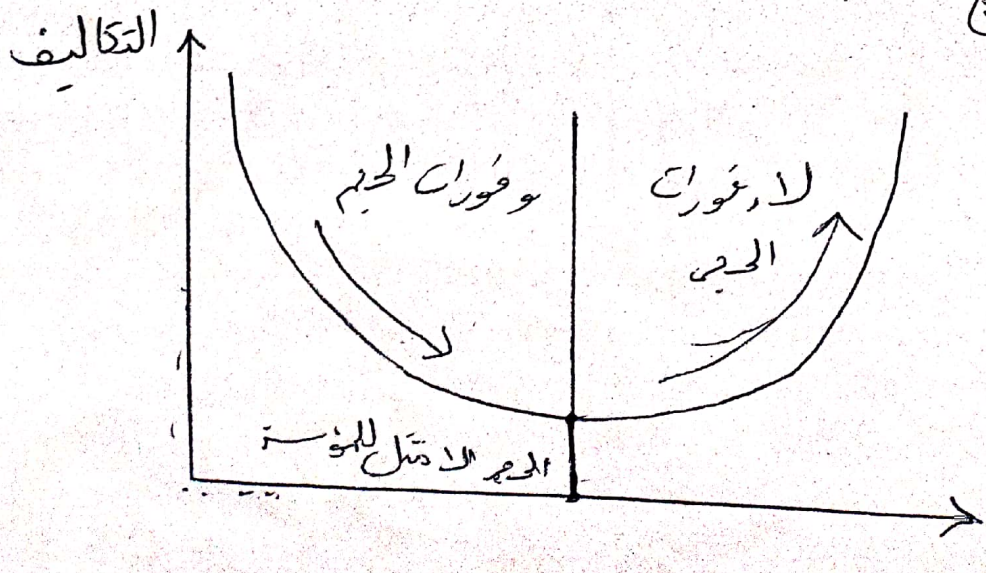 التكاليف
وفورات الحجم
لا وفورات
الحجم
الحجم الامثل للمؤسسة